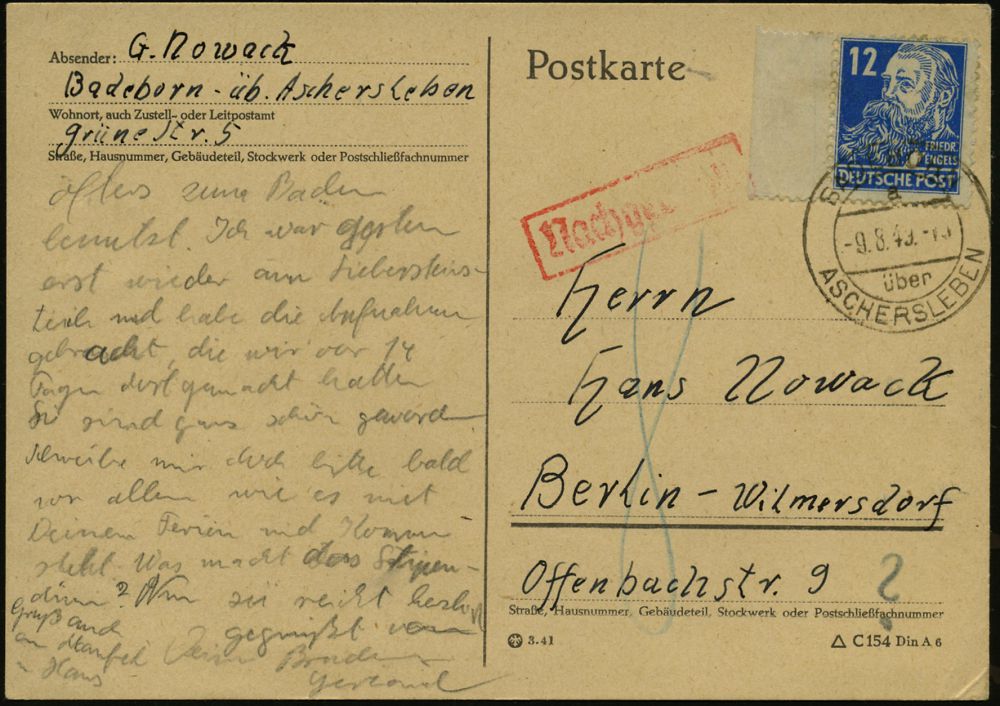 Absender: G. Nowack
Badeborn - üb. Aschersleben
Wohnort, auch Zustell- oder Leitpostamt
Grüne Str. 5
Straße, Hausnummer, Gebäudeteil, Stockwerk oder Postschließfachnummer
öfters zum Baden
benutzt. Ich war gestern
erst wieder am
teich und habe die Aufnahmen
gebracht, die wir vor 14
Tagen dort gemacht hatten
Sie sind ganz schön geworden
Schreibe mir doch bitte bald
vor allem wie es mit
Deinen Ferien und Kommen
steht. Was macht das Stipen-
dium? Nun sei recht herzl.
gegrüßt von
Deinem Bruder
Gerhard
Gruß auch
an
Hans
Postkarte
12
FRIEDR.
ENGELS
DEUTSCHE POST
a
-9.8.49.-
über
ASCHERSLEBEN
Herrn
Hans Nowack
Berlin - Wilmersdorf
Offenbachstr. 9 ?
Straße, Hausnummer, Gebäudeteil, Stockwerk oder Postschließfachnummer
3.41
C 154 Din A 6